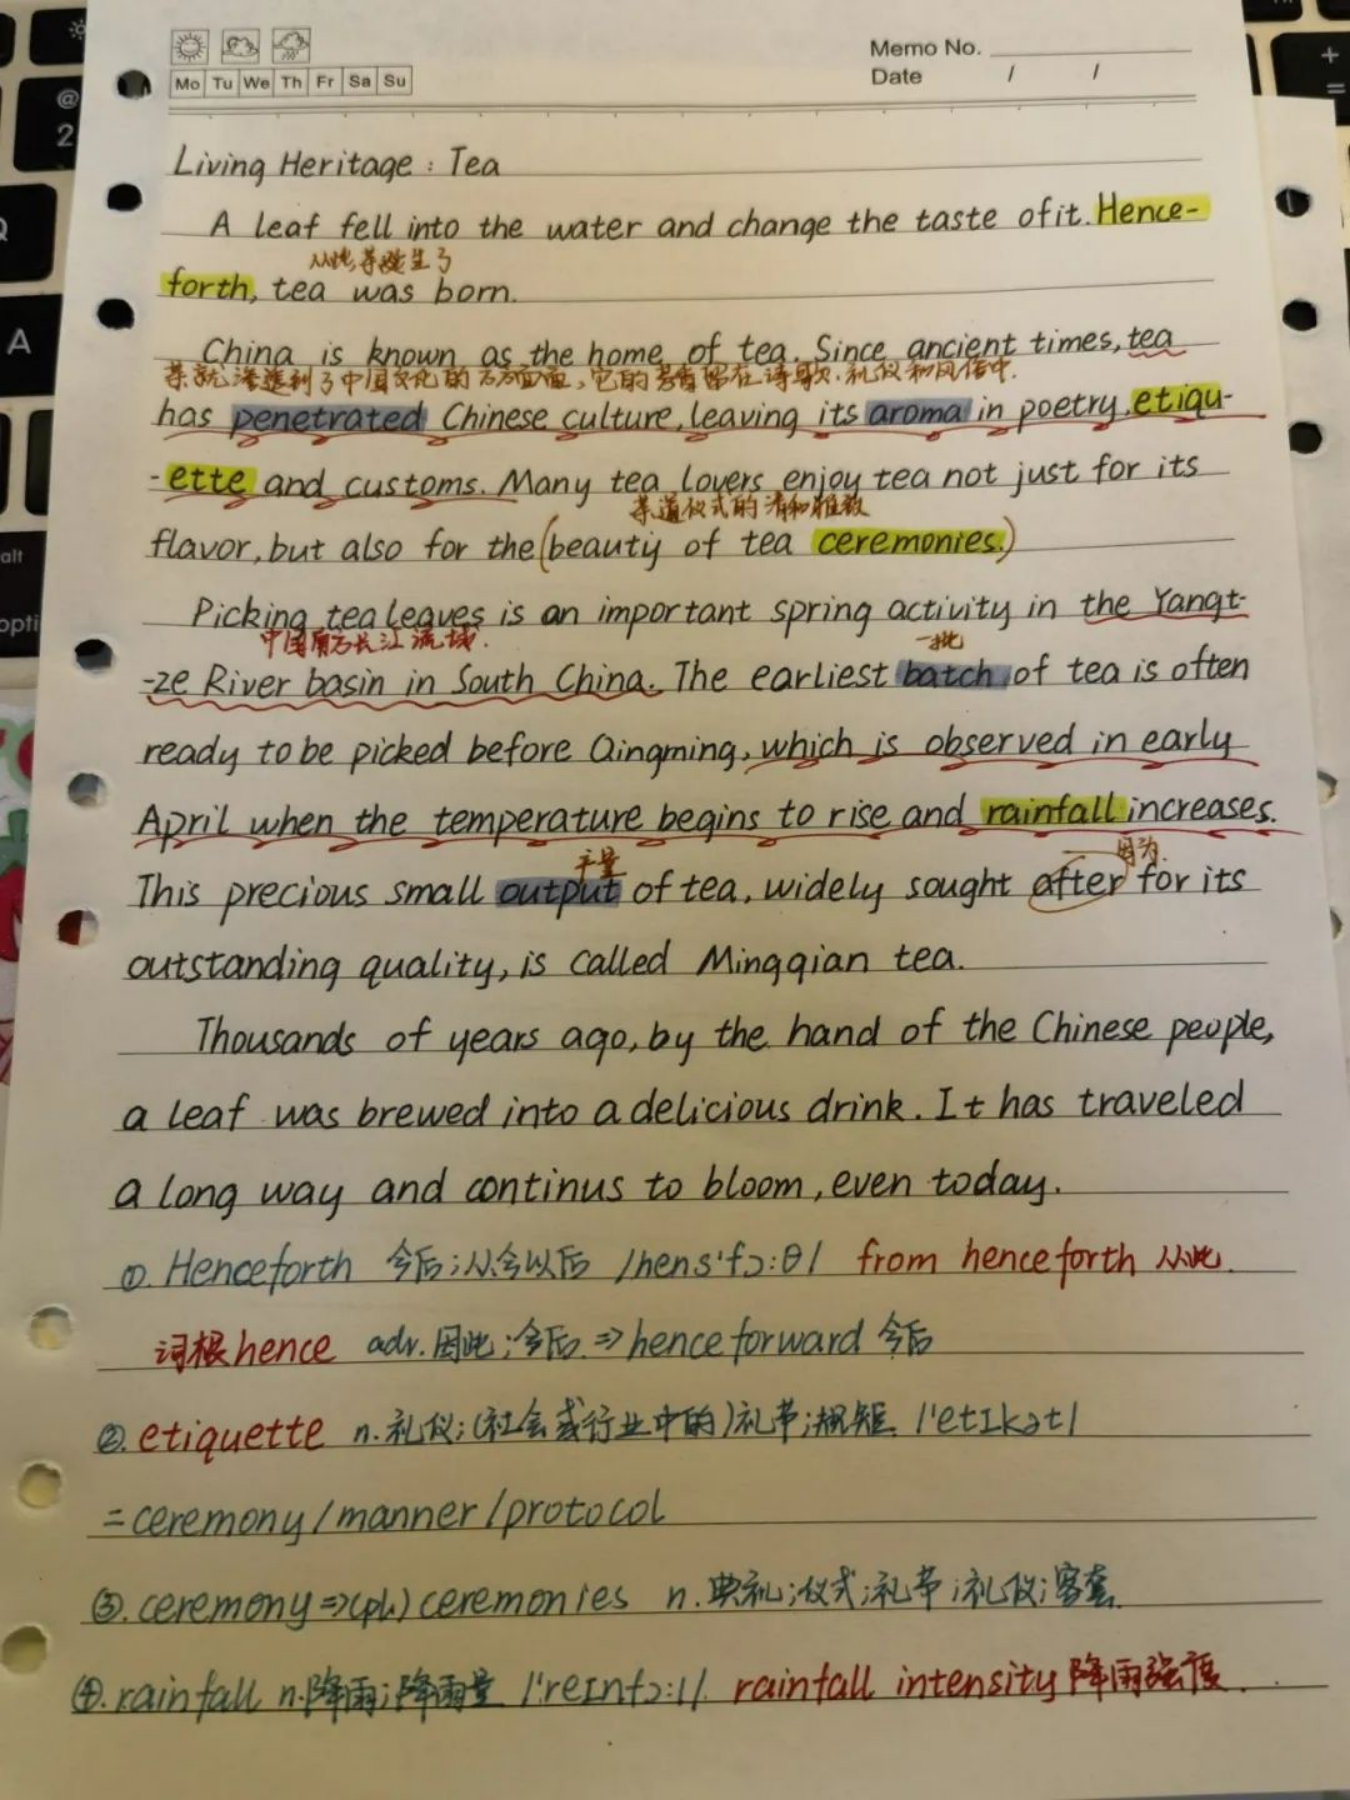 Mo Tu We Th Fr Sa Su
Memo No.
Date / /
Living Heritage : Tea
A leaf fell into the water and change the taste of it. Hence-
从此,茶诞生了
forth, tea was born.
China is known as the home of tea. Since ancient times, tea
茶就渗透到了中国文化的方方面面,它的芳香留在诗歌.礼仪和风俗中.
has penetrated Chinese culture, leaving its aroma in poetry, etiqu-
-ette and customs. Many tea lovers enjoy tea not just for its
茶道仪式的清和雅致
flavor, but also for the (beauty of tea ceremonies.)
Picking tea leaves is an important spring activity in the Yangt-
中国南方长江流域. 一批
-ze River basin in South China. The earliest batch of tea is often
ready to be picked before Qingming, which is observed in early
April when the temperature begins to rise and rainfall increases.
产量 因为
This precious small output of tea, widely sought after for its
outstanding quality, is called Mingqian tea.
Thousands of years ago, by the hand of the Chinese people,
a leaf was brewed into a delicious drink. It has traveled
a long way and continus to bloom, even today.
①. Henceforth 今后;从今以后 /hens'fɔ:θ/ from henceforth 从此.
词根hence adv.因此;今后.⇒henceforward 今后
②. etiquette n.礼仪;(社会或行业中的)礼节;规矩. /'etɪkət/
=ceremony/manner/protocol
③. ceremony⇒(pl.) ceremonies n.典礼;仪式;礼节;礼仪;客套.
④. rainfall n.降雨;降雨量 /'reɪnfɔ:l/. rainfall intensity 降雨强度.
@
2
Q
A
alt
opti
+
=